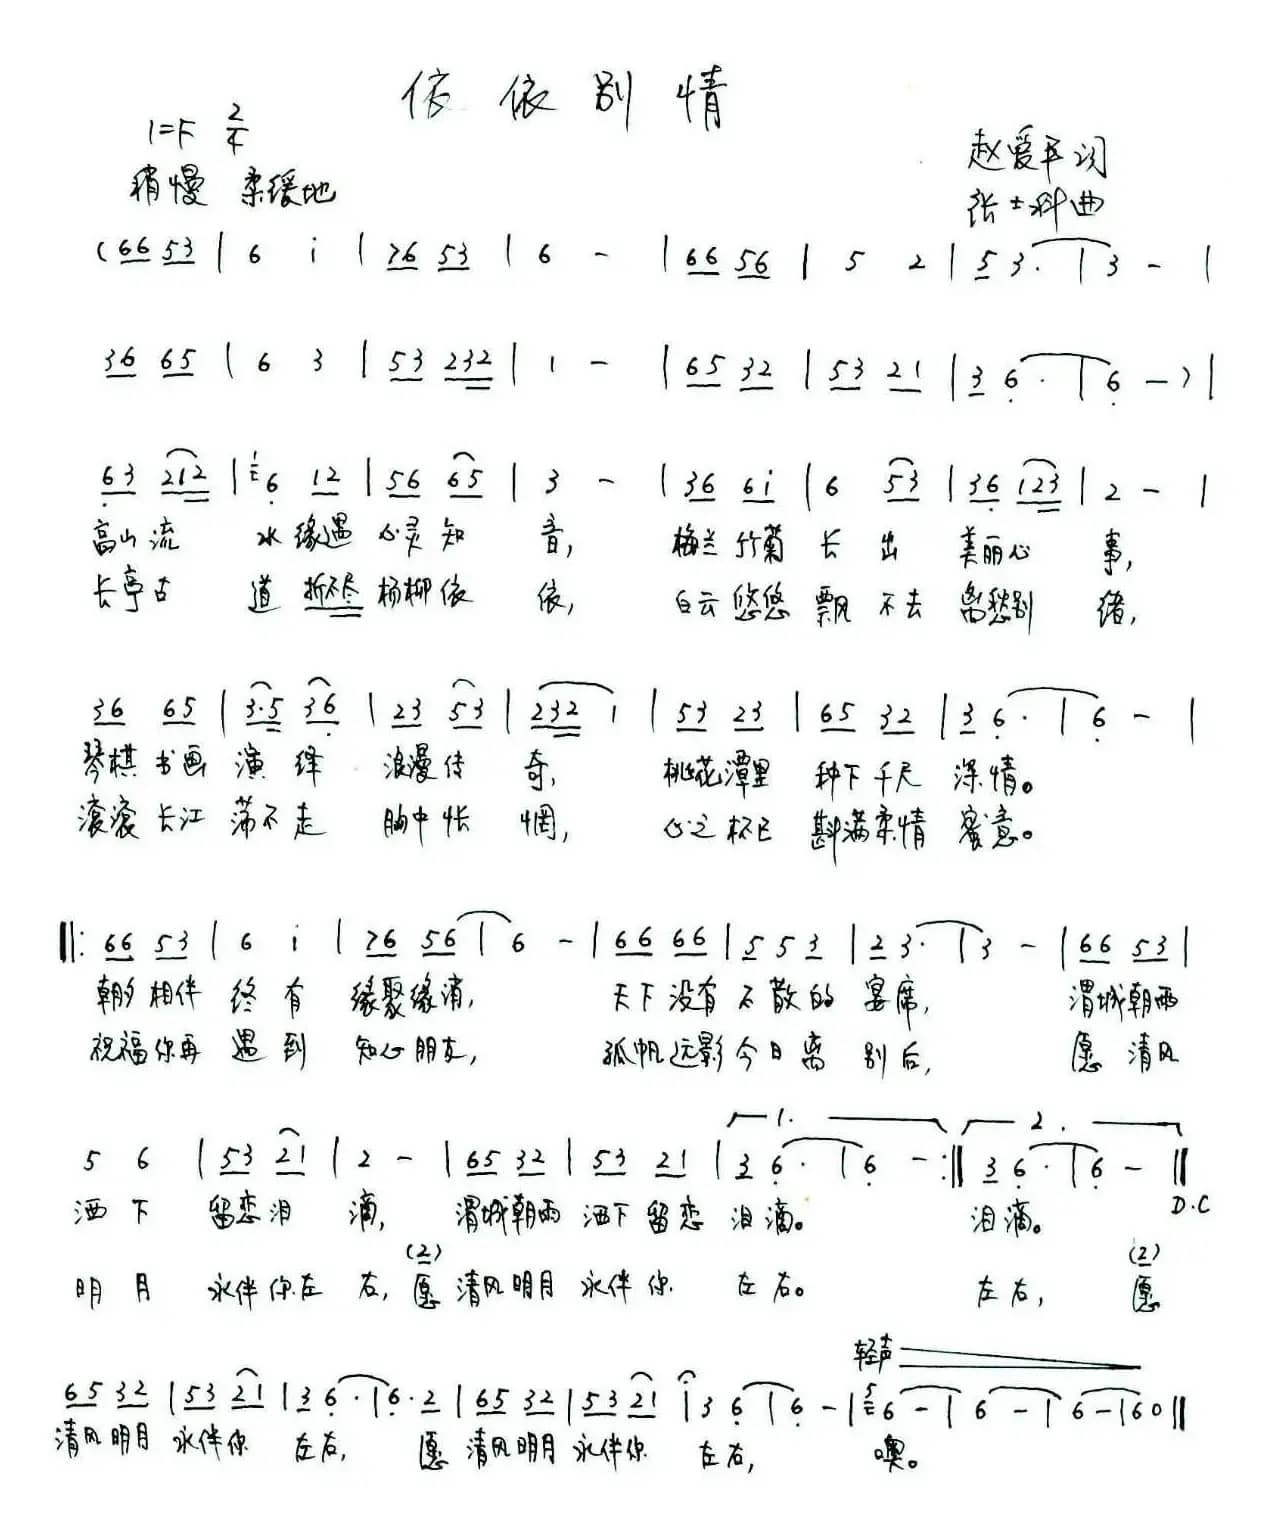 依依别情
1=F 2/4
赵爱平词
稍慢 柔缓地
张士科曲
(66 53 | 6 i | 76 53 | 6 - | 66 56 | 5 2 | 5 3. | 3 - |
36 65 | 6 3 | 53 232 | 1 - | 65 32 | 53 21 | 3 6. | 6 - ) |
63 212 | 1 6 12 | 56 65 | 3 - | 36 6i | 6 53 | 36 123 | 2 - |
高山流 水缘遇 心灵知 音, 梅兰竹菊 长出 美丽心 事,
长亭古 道折不尽 杨柳依 依, 白云悠悠 飘不去 离愁别 绪,
36 65 | 3.5 36 | 23 53 | 232 1 | 53 23 | 65 32 | 3 6. | 6 - |
琴棋书画 演绎 浪漫传 奇, 桃花潭里 种下千尺 深情。
滚滚长江 荡不走 胸中怅 惘, 心之杯已 斟满柔情 蜜意。
‖: 66 53 | 6 i | 76 56 | 6 - | 66 66 | 5 5 3 | 2 3. | 3 - | 66 53 |
朝夕相伴 终有 缘聚缘消, 天下没有 不散的 宴席, 渭城朝雨
祝福你再 遇到 知心朋友, 孤帆远影 今日离 别后, 愿清风
1. 2.
5 6 | 53 21 | 2 - | 65 32 | 53 21 | 3 6. | 6 - :‖ 3 6. | 6 - ‖
D.C
洒下 留恋泪 滴, 渭城朝雨 洒下留恋 泪滴。 泪滴。
(2) (2)
明月 永伴你左 右, 愿 清风明月 永伴你 左右。 左右, 愿
轻声
65 32 | 53 21 | 3 6. | 6. 2 | 65 32 | 53 21 | 3 6 | 6 - | 5 6 - | 6 - | 6 - | 60 ‖
清风明月 永伴你 左右, 愿 清风明月 永伴你 左右, 噢。